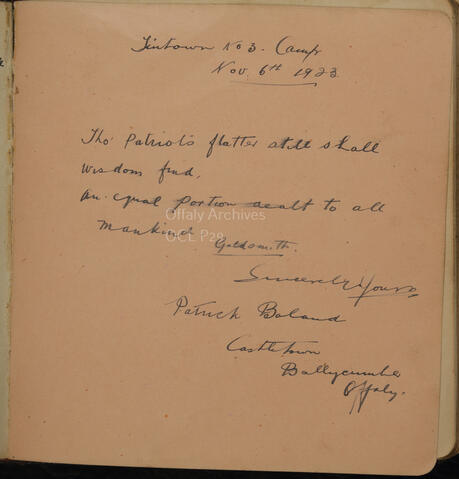 Tintown No 3. Camp
Nov. 6th 1923
Tho' Patriots flatter still shall
wisdom find,
An equal portion dealt to all
Mankind Goldsmith.
Offaly Archives
OCL P28
Sincerely Yours
Patrick Boland
Castletown
Ballycumber
Offaly.